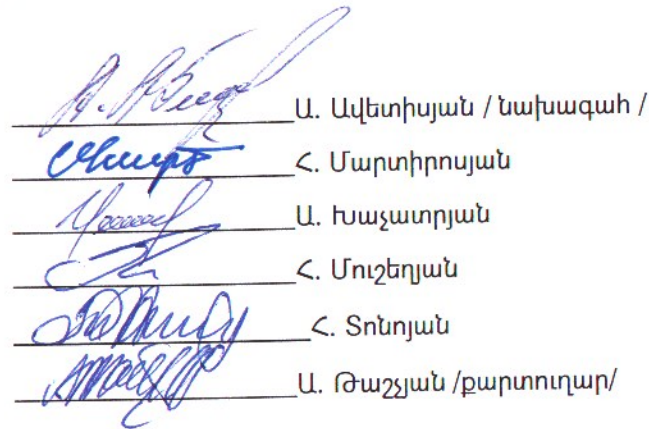 Ա. Ավետիսյան / նախագահ /
Հ. Մարտիրոսյան
Ա. Խաչատրյան
Հ. Մուշեղյան
Հ. Տոնոյան
Ա. Թաշչյան /քարտուղար/